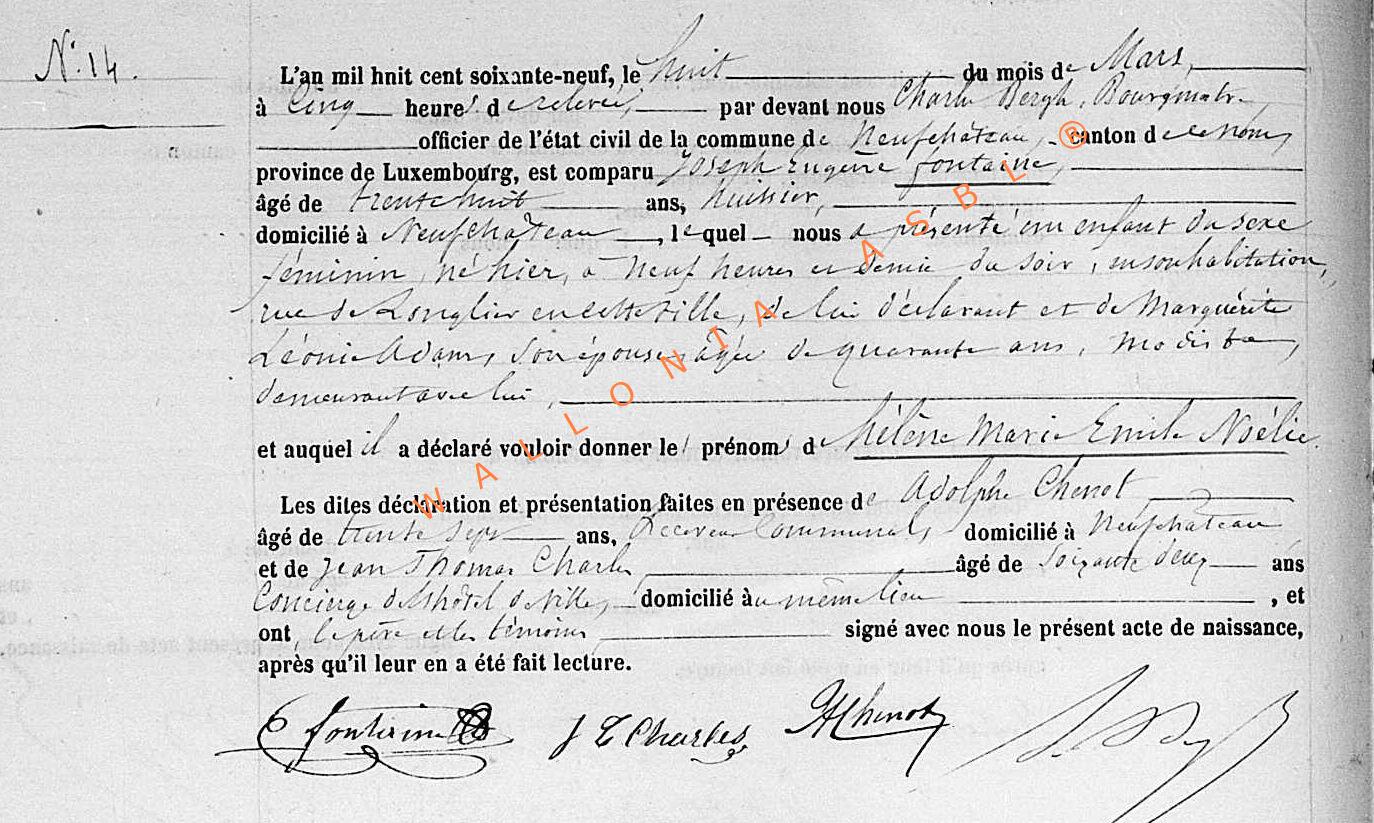 N° 14.
L'an mil hnit cent soixante-neuf, le huit du mois de Mars,
à Cinq heures de relevée, par devant nous Charles Bergh, Bourgmestre,
officier de l'état civil de la commune de Neufchâteau, canton de ce nom,
province de Luxembourg, est comparu Joseph Eugène fontaine,
âgé de trente huit ans, huissier,
domicilié à Neufchâteau, lequel nous a présenté un enfant du sexe
féminin, né hier, à neuf heures et demie du soir, en son habitation,
rue de Longlier en cette ville, de lui déclarant et de Marguérite
Léonie Adam, son épouse, âgée de quarante ans, modiste,
demeurant avec lui,
et auquel il a déclaré vouloir donner les prénoms de Hélène Marie Emile Noélie.
Les dites déclaration et présentation faites en présence de Adolphe Chenot
âgé de trente sept ans, Receveur Communal, domicilié à Neufchateau
et de Jean Thomas Charles âgé de soixante deux ans
Concierge de l'hôtel de ville, domicilié au même lieu, et
ont le père et les témoins, signé avec nous le présent acte de naissance,
après qu'il leur en a été fait lecture.
E fontaine J T Charles A Chenot
WALLONIA ASBL ®